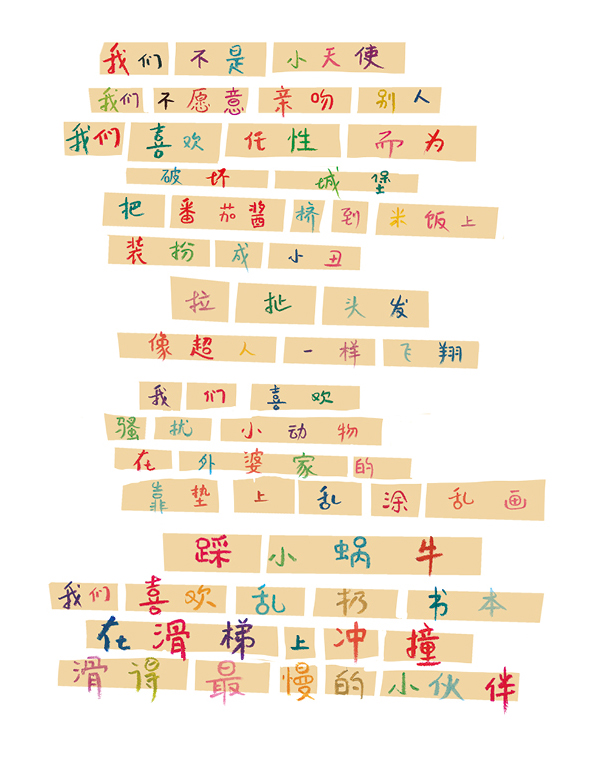 我们不是小天使
我们不愿意亲吻别人
我们喜欢任性而为
破坏城堡
把番茄酱挤到米饭上
装扮成小丑
拉扯头发
像超人一样飞翔
我们喜欢
骚扰小动物
在外婆家的
靠垫上乱涂乱画
踩小蜗牛
我们喜欢乱扔书本
在滑梯上冲撞
滑得最慢的小伙伴